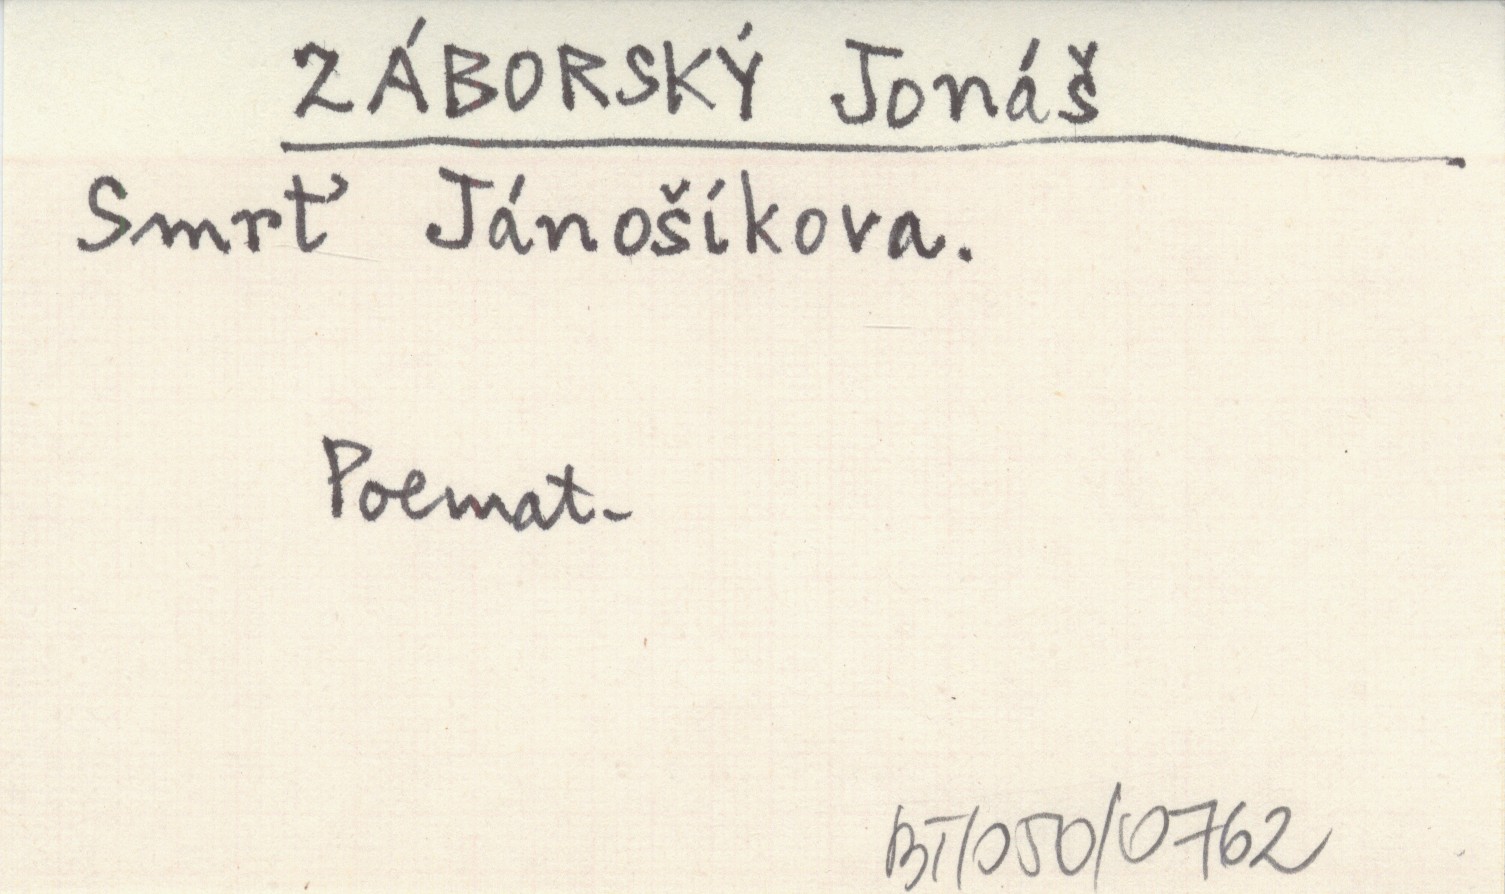 ZÁBORSKÝ Jonáš
Smrť Jánošíkova.
Poemat.
BT/050/0762